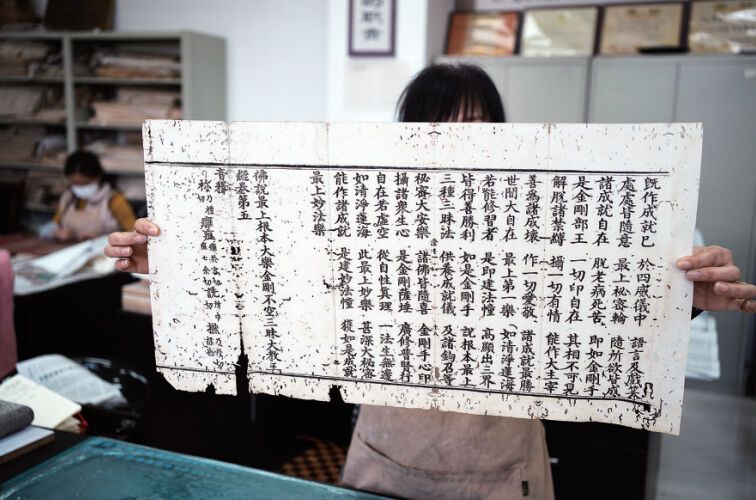 既作成就已 於四威儀中 語言及戲笑
處處皆隨意 最上秘密輪 隨所欲皆成
諸成就自在 脫老病死苦 即如金剛手
是金剛部王 一切印自在 其相不可見
解脫諸禁縛 攝一切有情 能作大主宰
善為諸成壞 作一切愛敬 諸成就最勝
世間大自在 最上第一樂 如清淨蓮海
若能修習者 是即建法幢 高顯出三界
皆得善勝利 如是金剛手 說根本最上
三種三昧法 供養成就儀 及諸鉤召等
秘密大安樂 諸佛皆隨喜 金剛手心印
攝諸衆生心 是金剛薩埵 廣修普賢行
自在若虛空 從自性真理 一法生無邊
如清淨蓮海 此最上妙樂 甚深大秘密
能作諸成就 是建妙法幢 復如是
最上妙法樂
佛說最上根本大樂金剛不空三昧大教王
經卷第五
音釋